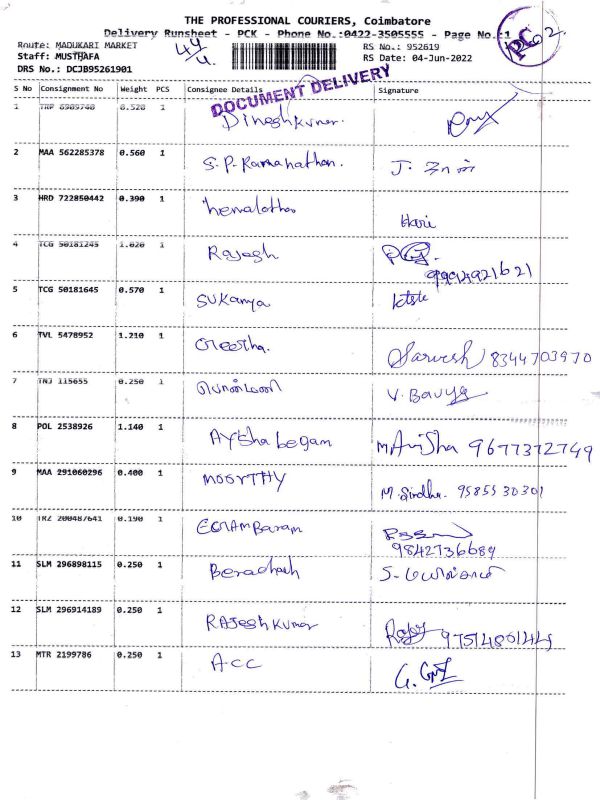 THE PROFESSIONAL COURIERS, Coimbatore
Delivery Runsheet - PCK - Phone No.:0422-3505555 - Page No.:1
Route: MADUKARI MARKET
Staff: MUSTHAFA
DRS No.: DCJB95261901
RS No.: 952619
RS Date: 04-Jun-2022
DOCUMENT DELIVERY
S No Consignment No Weight PCS Consignee Details Signature
1 TRP 6909748 0.520 1 Dineshkumar.
2 MAA 562285378 0.560 1 S.P. Ramanathan.
3 HRD 722850442 0.390 1 hemalatha Hari
4 TCG 50181245 1.020 1 Rajesh
9994921621
5 TCG 50181645 0.570 1 SUKanya
6 TVL 5478952 1.210 1 Geetha. Sarvesh 8344703970
7 TNJ 115655 0.250 1 V. Bavya
8 POL 2538926 1.140 1 AYSha begam 9677372749
9 MAA 291060296 0.400 1 MOORTHY M. Sindhu. 9585530301
10 TRZ 200487641 0.190 1
9842736689
11 SLM 296898115 0.250 1
12 SLM 296914189 0.250 1 RAJesh KUmar
13 MTR 2199786 0.250 1 ACC